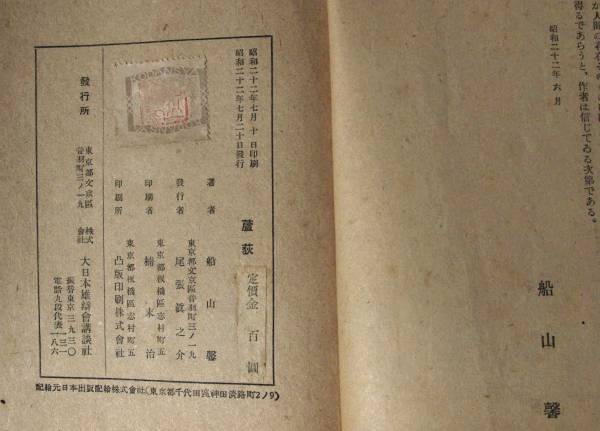 得るであらうと、作者は信じてゐる次第である。
昭和二十二年六月
船山馨
昭和二十二年七月 十日印刷
昭和二十二年七月二十日發行
KODANSYA
蘆荻
定價金 百圓
著者 船山馨
東京都文京區音羽町三ノ一九
發行者 尾張眞之介
東京都板橋區志村町五
印刷者
東京都板橋區志村町五
印刷所 凸版印刷株式會社
發行所
東京都文京區
音羽町三ノ一九
株式
會社
大日本雄辯會講談社
振替東京三九三〇
電話九段代表一三一
一八六
配給元日本出版配給株式會社(東京都千代田區神田淡路町2ノ9)